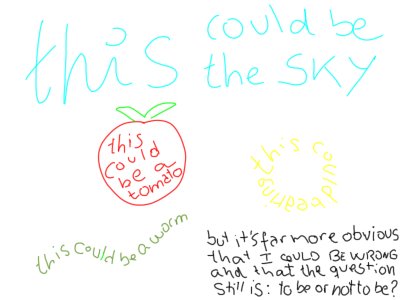 this could be
the SKY
this
could
be a
tomato
this could be a ring
this could be a worm
but it's far more obvious
that I COULD BE WRONG
and that the question
still is: to be or not to be?